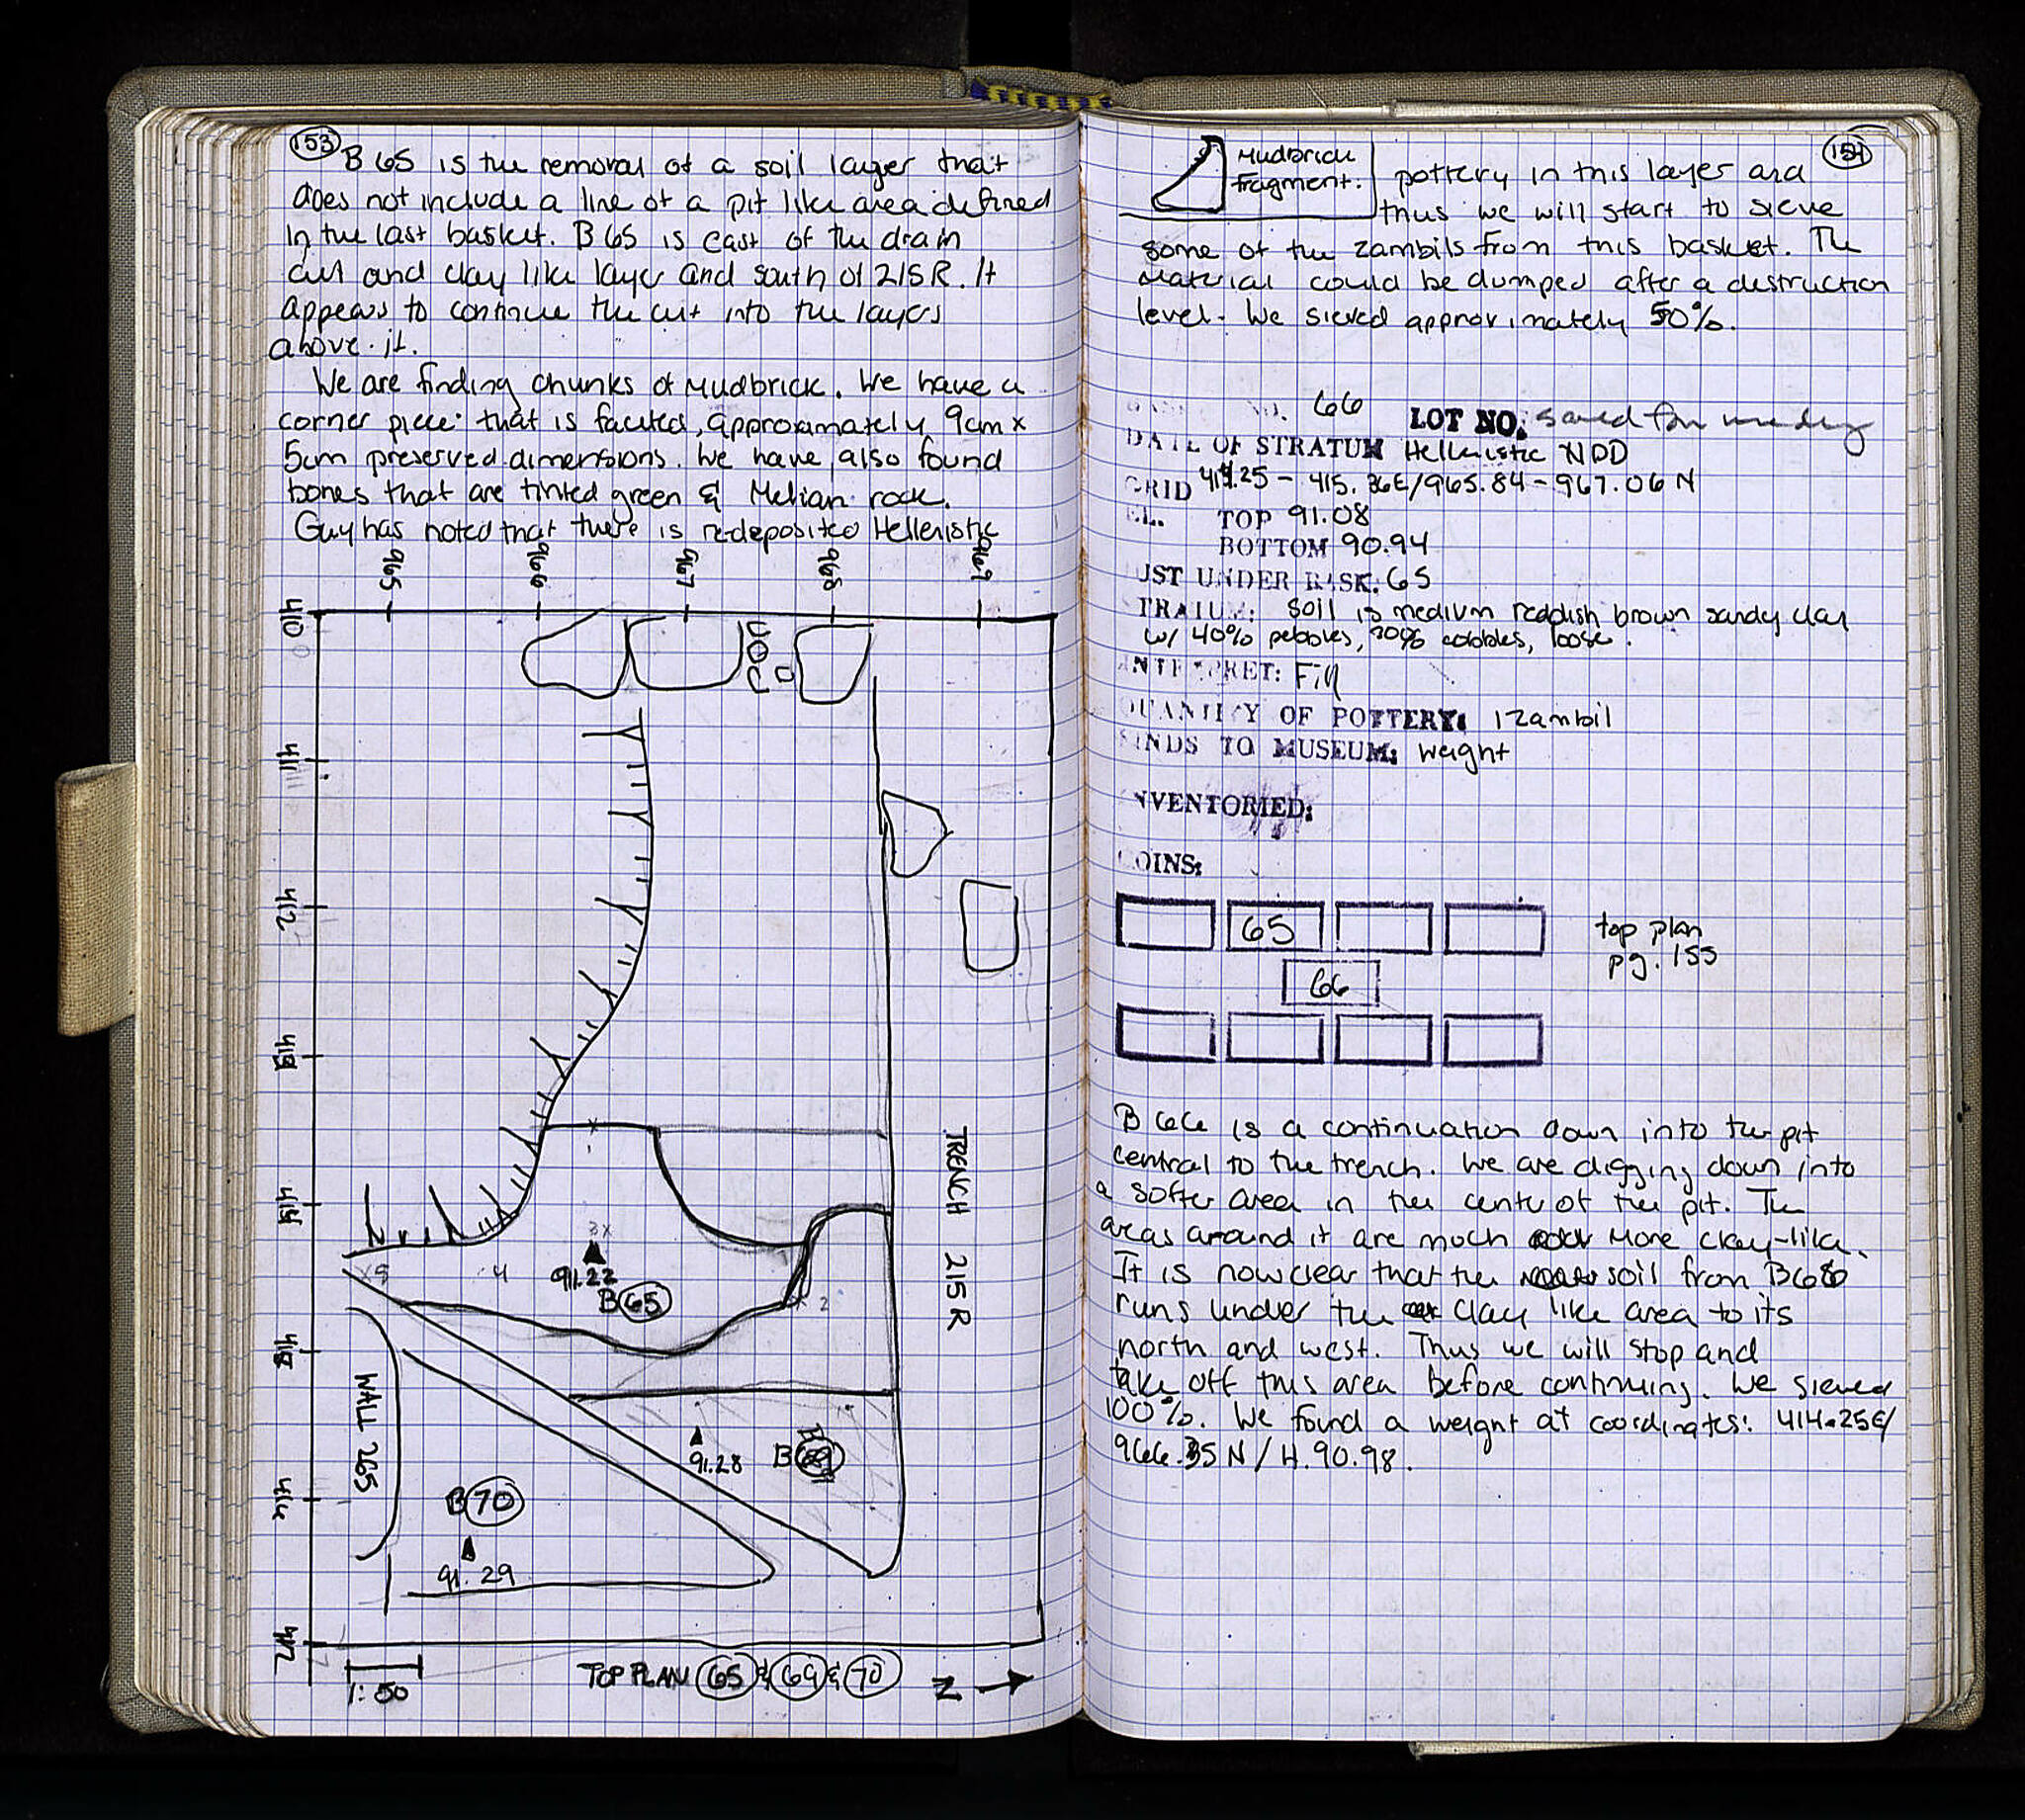 153
B 65 is the removal of a soil layer that
does not include a line of a pit like area defined
in the last basket. B 65 is east of the drain
cut and clay like layer and south of 215R. It
appears to continue the cut into the layers
above it.
We are finding chunks of Mudbrick. We have a
corner piece that is faceted, approximately 9cm x
5cm preserved dimensions. We have also found
bones that are tinted green & Melian rock.
Guy has noted that there is redeposited Hellenistic
965 966 967 968 969
410
411
412
413
414
415
416
417
TRENCH 215R
1
3x
91.22
B 65
x5
4
x 2
WALL 265
91.28
B 69
B 70
91.29
1:50
TOP PLAN 65 & 69 & 70
N
154
Mudbrick
fragment.
pottery in this layer and
thus we will start to sieve
some of the zambils from this basket. The
Material could be dumped after a destruction
level. We sieved approximately 50%.
NO. 66
LOT NO. saved for mending
DATE OF STRATUM Hellenistic NDD
GRID 414.25 - 415.36E/965.84 - 967.06 N
EL. TOP 91.08
BOTTOM 90.94
UST UNDER BASK. 65
TRATUM: soil is medium reddish brown sandy clay
w/ 40% pebbles, 20% cobbles, loose.
INTERPRET: Fill
QUANTITY OF POTTERY: 1 zambil
INDS TO MUSEUM: weight
NVENTORIED:
OINS:
65
66
top plan
pg. 155
B 66 is a continuation down into the pit
central to the trench. We are digging down into
a softer area in the center of the pit. The
areas around it are much more clay-like.
It is now clear that the soil from B66
runs under the clay like area to its
north and west. Thus we will stop and
take off this area before continuing. We sieved
100%. We found a weight at coordinates: 414.25E/
966.35 N / H. 90.98.